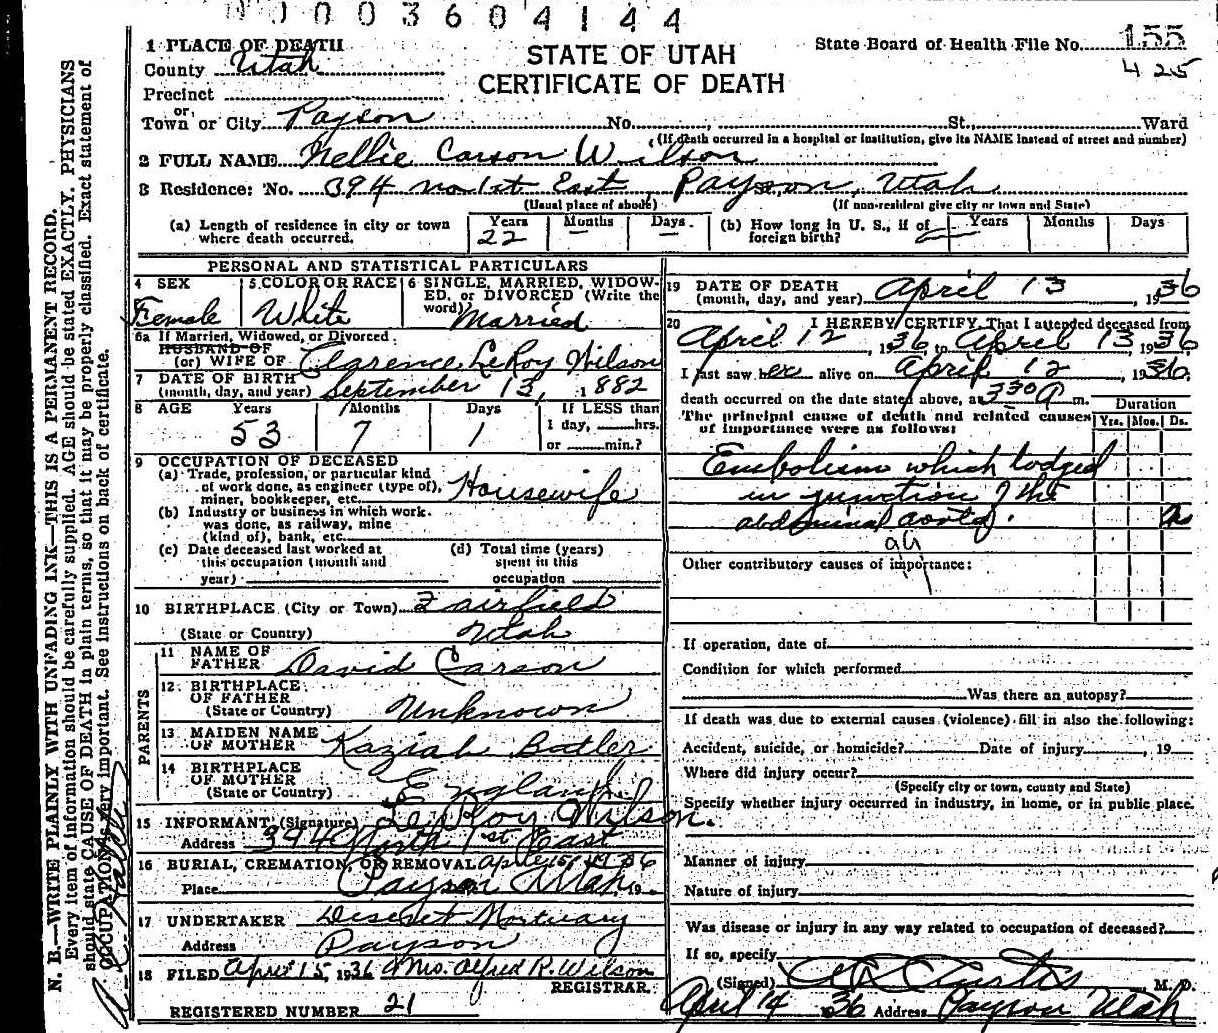 N 0 0 0 3 6 0 4 1 4 4
N. B.—WRITE PLAINLY WITH UNFADING INK—THIS IS A PERMANENT RECORD.
Every item of information should be carefully supplied. AGE should be stated EXACTLY. PHYSICIANS
should state CAUSE OF DEATH in plain terms, so that it may be properly classified. Exact statement of
OCCUPATION is very important. See instructions on back of certificate.
STATE OF UTAH
CERTIFICATE OF DEATH
State Board of Health File No. 155
425
1 PLACE OF DEATH
County Utah
Precinct
or
Town or City Payson No. , St., Ward
(If death occurred in a hospital or institution, give its NAME instead of street and number)
2 FULL NAME Nellie Carson Wilson
3 Residence: No. 394 No. 1st East, Payson, Utah
(Usual place of abode) (If non-resident give city or town and State)
(a) Length of residence in city or town where death occurred. Years 22 Months — Days —
(b) How long in U. S., if of foreign birth? Years Months Days
PERSONAL AND STATISTICAL PARTICULARS
4 SEX Female
5 COLOR OR RACE White
6 SINGLE, MARRIED, WIDOWED, or DIVORCED (Write the word) Married
6a If Married, Widowed, or Divorced
HUSBAND OF
(or) WIFE OF Clarence LeRoy Wilson
7 DATE OF BIRTH
(month, day, and year) September 13, 1882
8 AGE Years 53 Months 7 Days 1 If LESS than
1 day, hrs.
or min.?
9 OCCUPATION OF DECEASED
(a) Trade, profession, or particular kind
of work done, as engineer (type of),
miner, bookkeeper, etc. Housewife
(b) Industry or business in which work
was done, as railway, mine
(kind of), bank, etc.
(c) Date deceased last worked at
this occupation (month and
year)
(d) Total time (years)
spent in this
occupation
10 BIRTHPLACE (City or Town) Fairfield
(State or Country) Utah
PARENTS
11 NAME OF
FATHER David Carson
12 BIRTHPLACE
OF FATHER
(State or Country) Unknown
13 MAIDEN NAME
OF MOTHER Kaziah Butler
14 BIRTHPLACE
OF MOTHER
(State or Country) England
15 INFORMANT (Signature) LeRoy Wilson.
Address 394 North 1st East
16 BURIAL, CREMATION, OR REMOVAL April 15, 1936
Place Payson Utah 19
17 UNDERTAKER Deseret Mortuary
Address Payson
18 FILED April 15, 1936 Mrs. Alfred R. Wilson
REGISTRAR.
REGISTERED NUMBER 21
19 DATE OF DEATH
(month, day, and year) April 13, 1936
20 I HEREBY CERTIFY, That I attended deceased from
April 12, 1936 to April 13 1936
I last saw her alive on April 12, 1936
death occurred on the date stated above, at 3 30 A m.
The principal cause of death and related causes
of importance were as follows:
Duration
Yrs. Mos. Ds.
Embolism which lodged
in junction of the
abdominal aorta.
Other contributory causes of importance:
If operation, date of
Condition for which performed
Was there an autopsy?
If death was due to external causes (violence) fill in also the following:
Accident, suicide, or homicide? Date of injury , 19
Where did injury occur?
(Specify city or town, county and State)
Specify whether injury occurred in industry, in home, or in public place.
Manner of injury
Nature of injury
Was disease or injury in any way related to occupation of deceased?
If so, specify
(Signed) Curtis, M. D.
April 14 36 Address Payson Utah